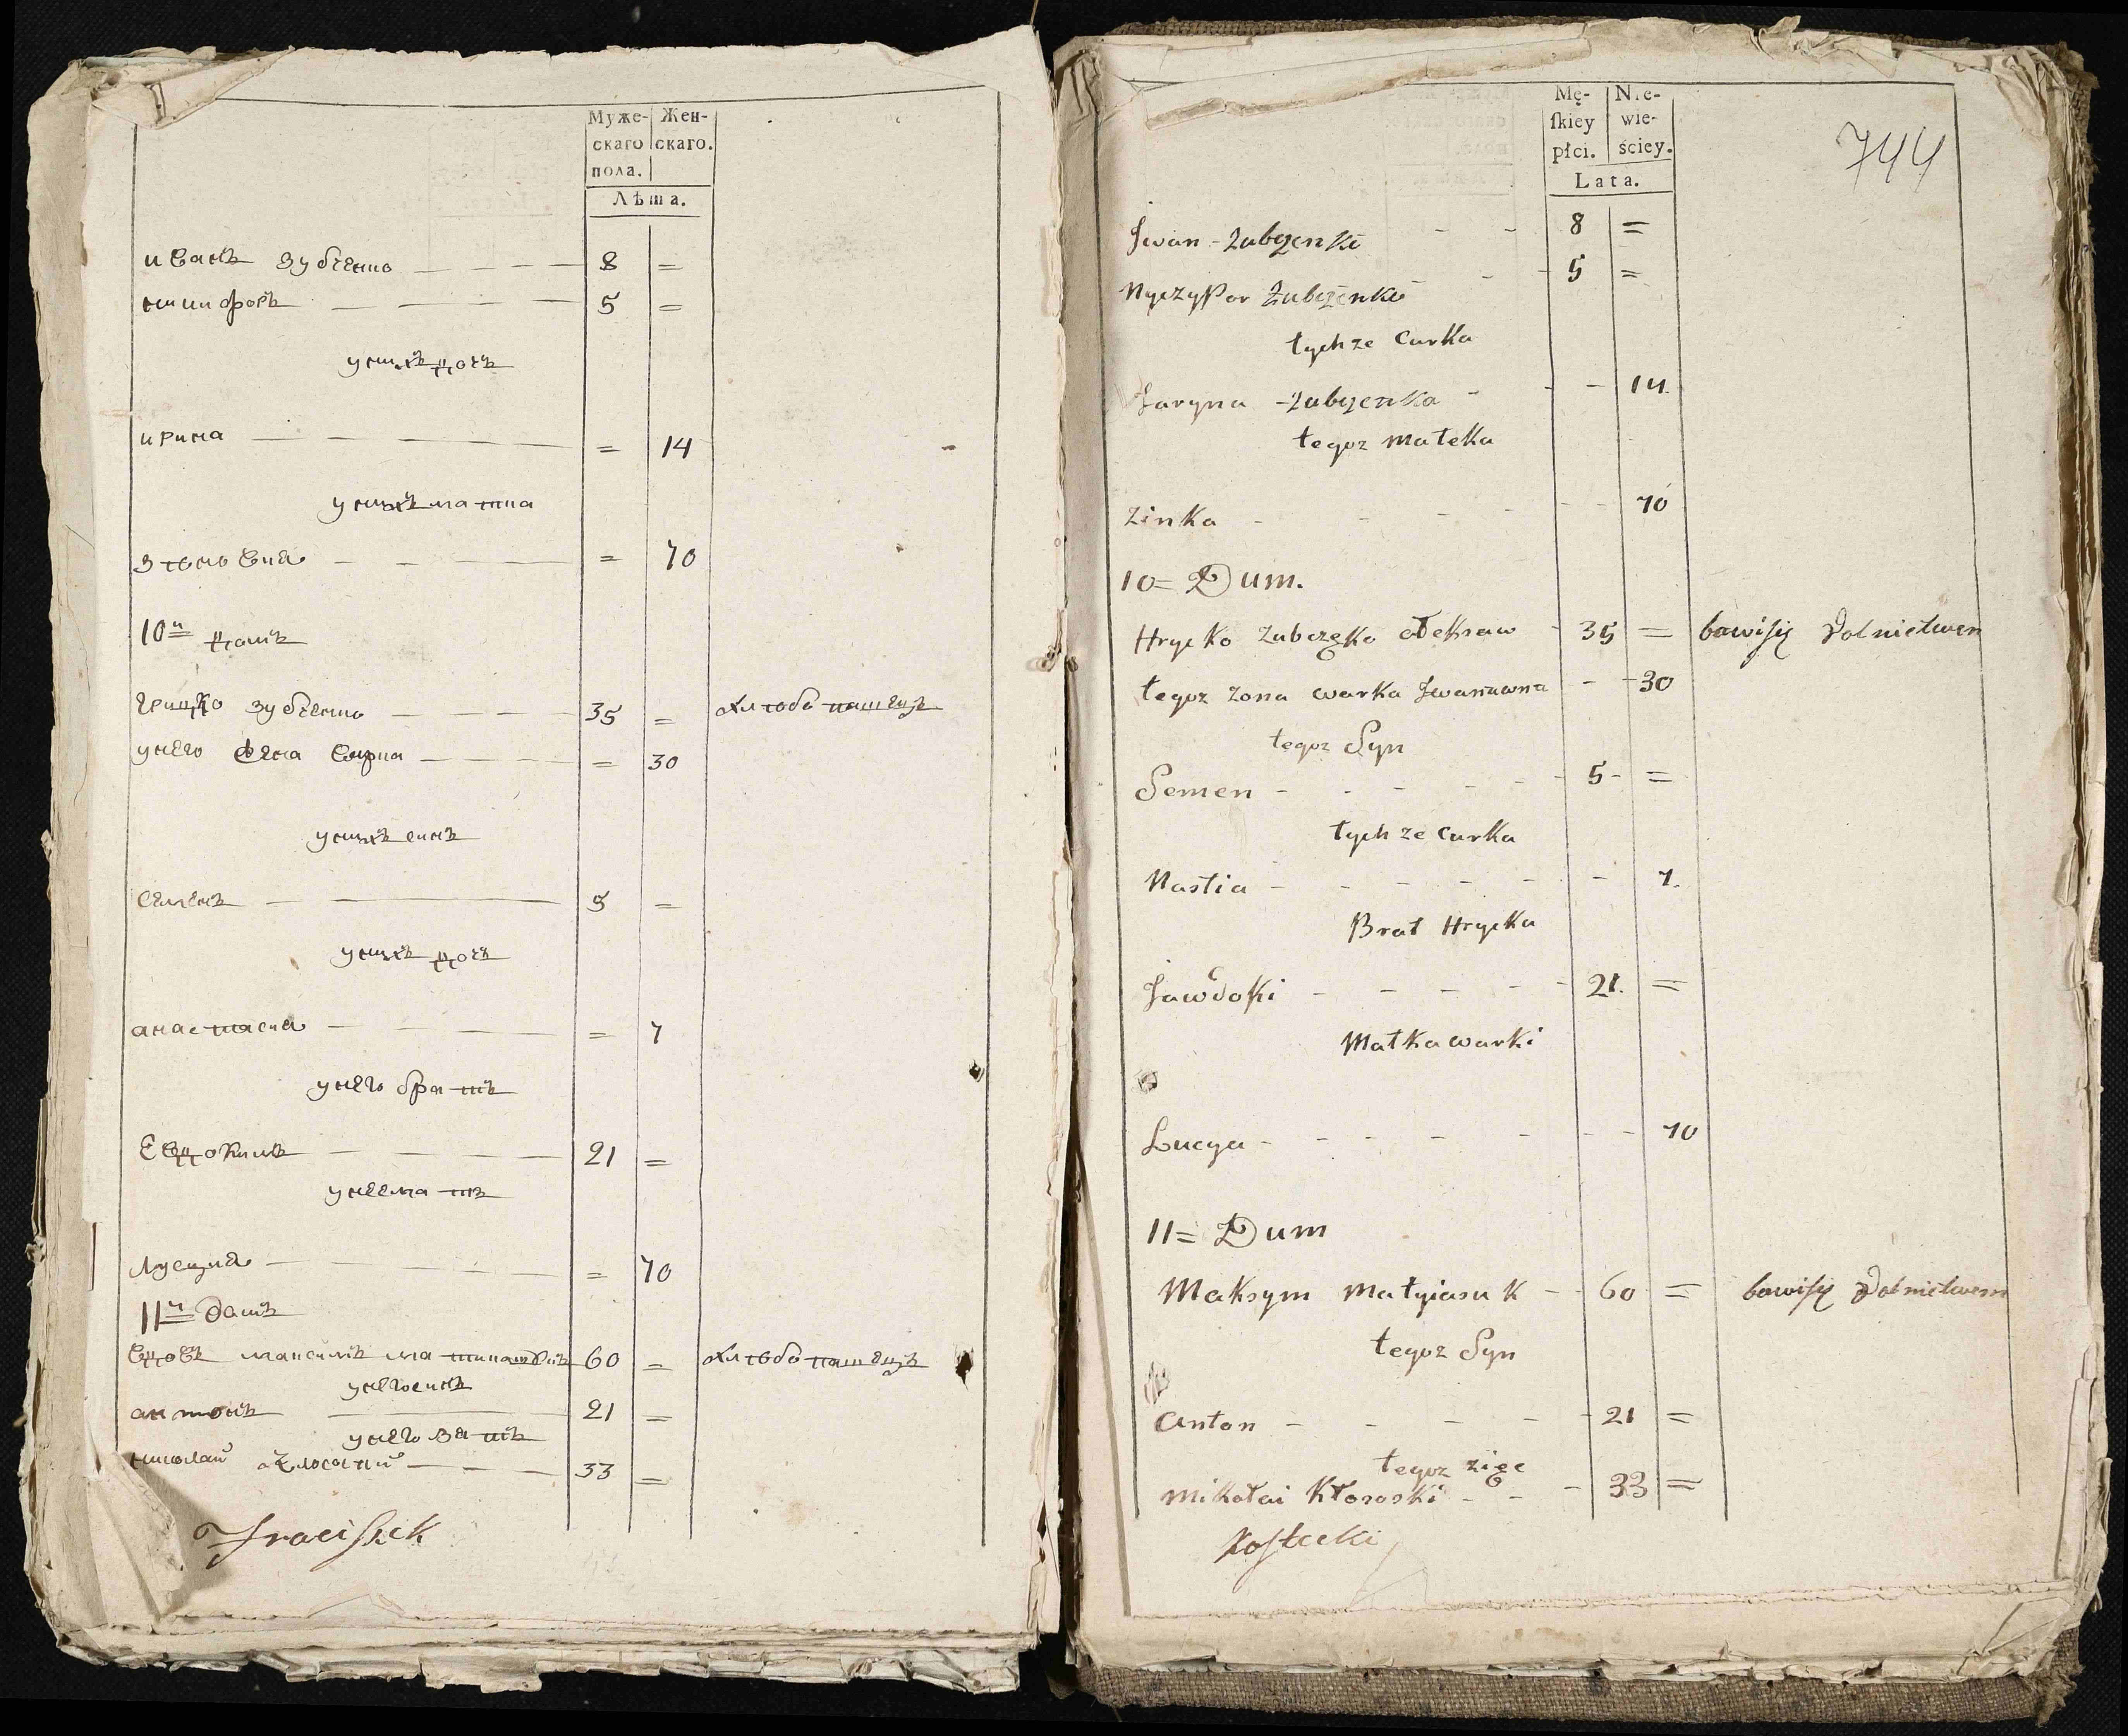 Муже- Жен-
скаго скаго.
пола.
Лѣта.
иванъ зубченко — — — — 8 =
никифоръ — — — 5 =
унихъ дочь
ирина — — — — = 14
унихъ матка
зѣновия — — — — = 70
10й домъ
грицко зубченко — — — — 35 = хлѣбопашецъ
унего жена варка — — — — = 30
унихъ синъ
семенъ — — — 5 =
унихъ дочь
анастасия — — — = 7
унего братъ
Евдокимъ — — — — 21 =
унее мать
луция — — — — = 70
11й домъ
вдовъ максимъ 60 = хлѣбопашецъ
унего синъ
антонъ — 21 =
унего зять
николай — — — 33 =
Franciſzek
Mę- Nie-
ſkiey wie-
płci. ściey.
Lata.
744
Jwan - Zubczenko - - 8 =
Nyczypor Zubczenko - - 5 =
tychze Curka
Jaryna - Zubczenka - - - 14.
tegoz Mateka
Zinka - - - - - - 70
10= Dum.
Hrycko Zubczęko ołeksaw - 35 = bawiſię Rolnictwem
tegoz zona warka Jwanawna - - 30
tegoz Syn
Semen - - - - - - 5 - =
tychze Curka
Nastia - - - - - - - 7.
Brat Hrycka
Jawdoki - - - - - - 21. =
Matka warki
Lucya - - - - - - - 70
11= Dum
Maksym Matyiasuk - - 60 = bawiſię Rolnictwem
tegoz Syn
Anton - - - - - 21 =
tegoz zięc
Mikołai Kłososki - - - 33 =
Koſtecki